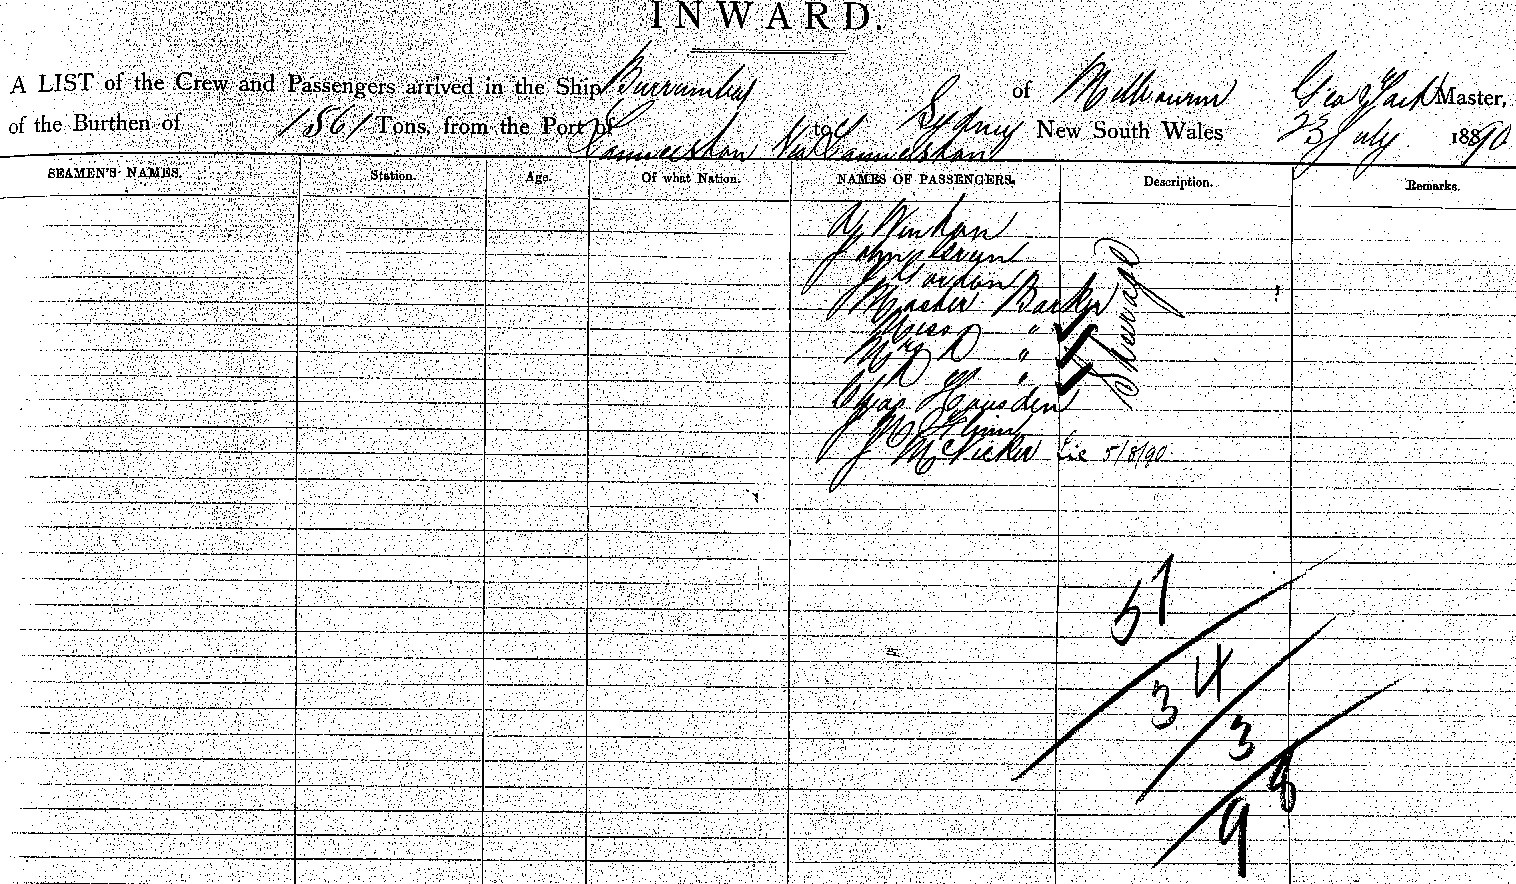 INWARD.
A LIST of the Crew and Passengers arrived in the Ship Burrumbeet of Melbourne Geo Master,
of the Burthen of Tons, from the Port of Launceston to Sydney New South Wales 23 July 1890
Via Launceston
SEAMEN'S NAMES. Station. Age. Of what Nation. NAMES OF PASSENGERS. Description. Remarks.
John
J Gordon
Master Barker
Miss "
Mr "
"
Chas Housden
J McVicker 5/8/90
Steerage
57
34
3
98